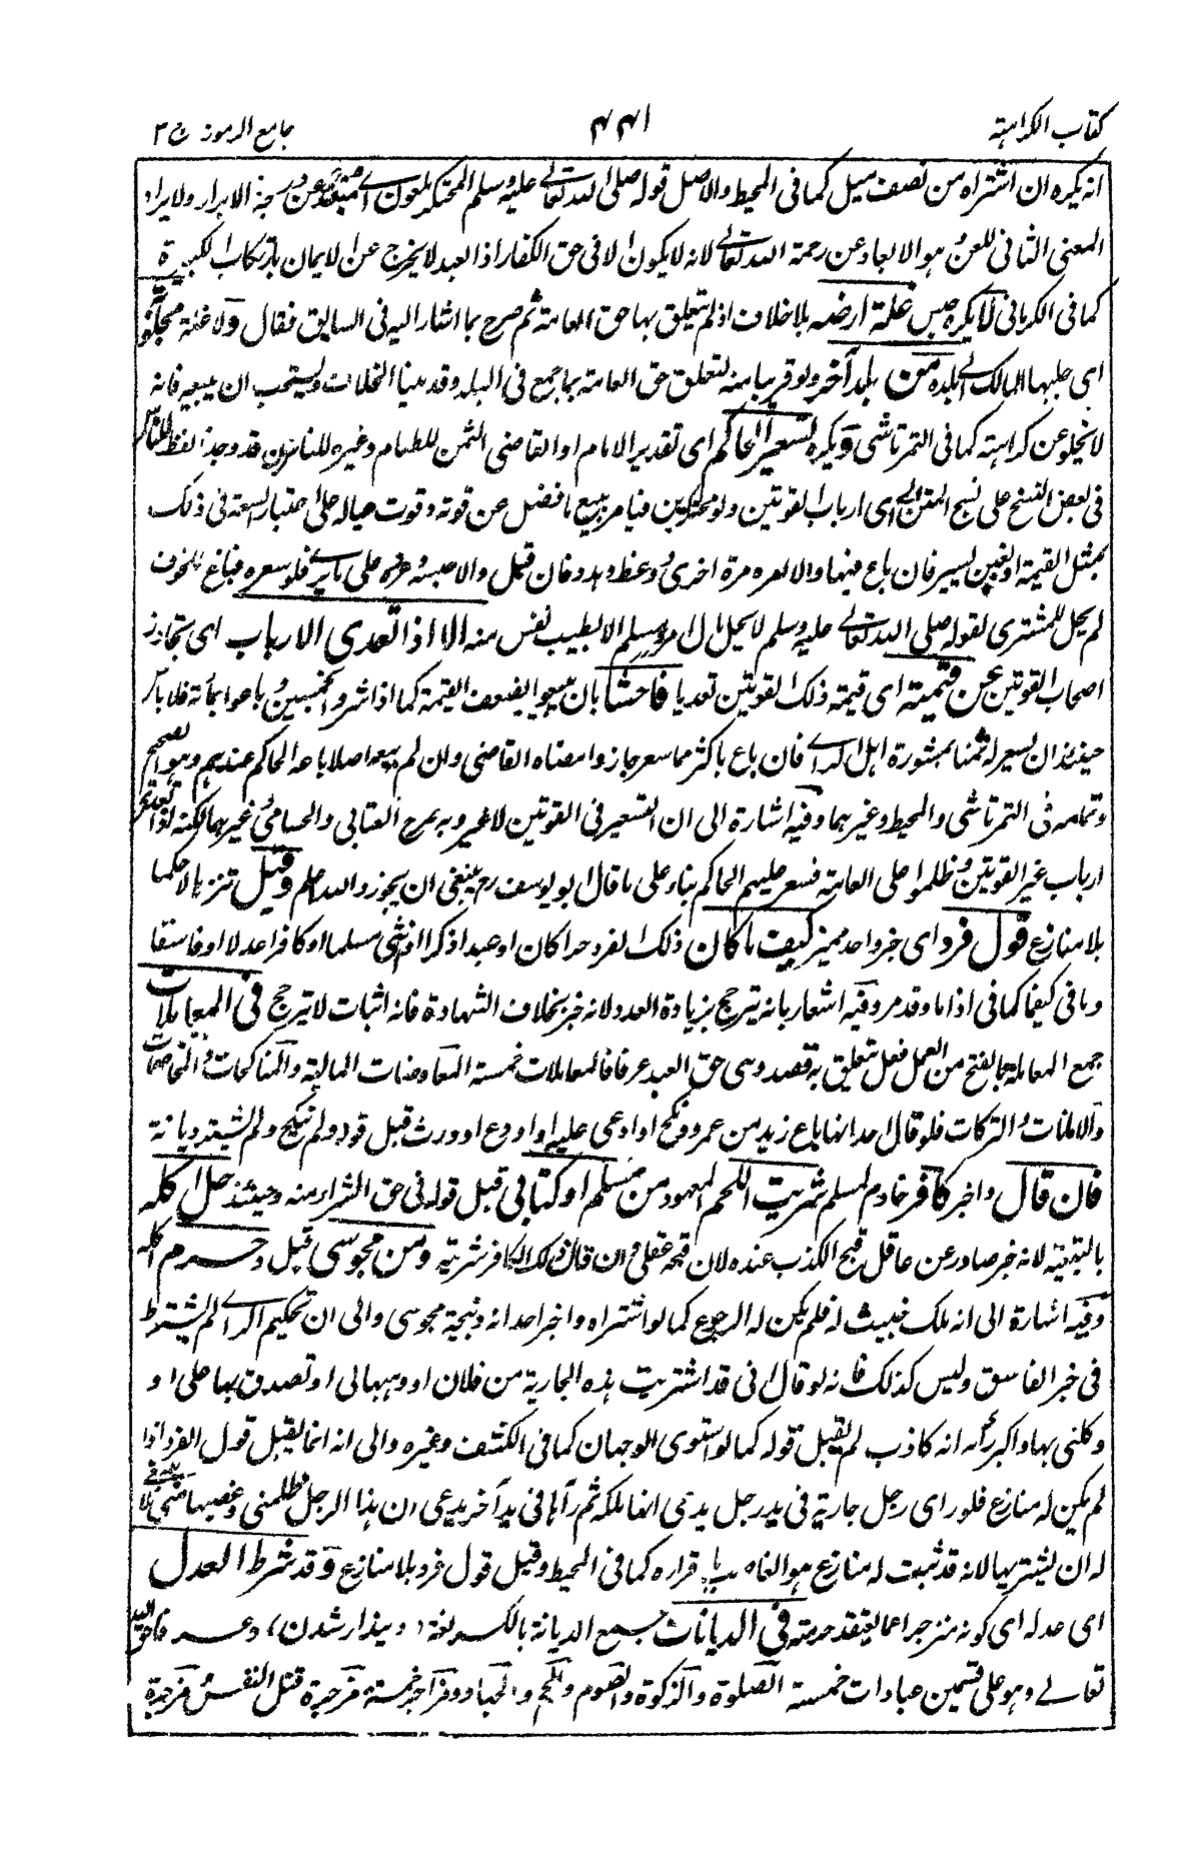 كتاب الكراهية
۴۴۱
جامع الرموز ج ٣
انه يكره ان اشتراه من نصف ميل كما فى المحيط والاصل قوله صلى الله تعالى عليه وسلم المحتكر ملعون اى مبتعد عن درجة الابرار ولا يراد
المعنى الثانى للعن وهو الابعاد عن رحمة الله تعالى لانه لا يكون الا فى حق الكفار اذ العبد لا يخرج عن الايمان بارتكاب الكبيرة
كما فى الكرمانى لا يكره حبس غلة ارضه بلا خلاف اذ لم يتعلق بها حق العامة ثم صرح بما اشار اليه فى السابق فقال ولا غلة مجلوبة
اى جلبها المالك الى بلده من بلد آخر ولو قريبا منه لتعلق حق العامة بما جمع فى البلد وقد مر هنا الخلاف ويستحب ان يبيعه فانه
لا يخلو عن كراهة كما فى التمرتاشى ويكره تسعير الحاكم اى تقدير الامام او القاضى الثمن للطعام وغيره للناس وقد وجد لفظ للناس
فى بعض النسخ على نسج المتن اى ارباب القوتين ولو محتكرين فيامر ببيع ما فضل عن قوته وقوت عياله على اعتبار السعة فى ذلك
بمثل القيمة او بغبن يسير فان باع فبها والا امره مرة اخرى ووعظ وهدد فان قبل والا حبسه وعزره على ما يرى فلو سعره فباع للخوف
لم يحل للمشترى لقوله صلى الله تعالى عليه وسلم لا يحل مال امرء مسلم الا بطيب نفس منه الا اذا تعدى الارباب اى تجاوز
اصحاب القوتين عن قيمته اى قيمة ذلك القوتين تعديا فاحشا بان يبيعوا بضعف القيمة كما اذا اشتروا بخمسين وباعوا بمائة فلا باس
حينئذ ان يسعر له ثمنا بمشورة اهل الراى فان باع باكثر مما سعر جاز وامضاه القاضى وان لم يبع اصلا باعه الحاكم عندهم وهو الصحيح
وتمامه فى التمرتاشى والمحيط وغيرهما وفيه اشارة الى ان التسعير فى القوتين لا غير وبه صرح العتابى والحسامى وغيرهما لكنه اذا تعدى
ارباب غير القوتين وظلموا على العامة فسعر عليهم الحاكم بناء على ما قال ابو يوسف رح ينبغى ان يجوز والله اعلم وقبل تنزيلا حكما
بلا منازع قول فرد اى خبر واحد مميز كيف ما كان ذلك الفرد حرا كان او عبدا ذكرا او انثى مسلما او كافرا عدلا او فاسقا
وما فى كيفما كما فى اذا ما وقد مر وفيه اشعار بانه ترجح بزيادة العدد لانه خبر بخلاف الشهادة فانه اثبات لا ترجح فى المعاملات
جمع المعاملة بالفتح من العمل فعل يتعلق به قصد وهى حق العبد عرفا فالمعاملات خمسة المعاوضات المالية والمناكحات والمخاصمات
والامانات والتركات فلو قال احد انها باع زيد من عمرو ونكح او ادعى عليه او اودع او ورث قبل قوله ولم ينكح ولم يشتر ديانة
فان قال واخبر كافر خادم لمسلم شريت اللحم المعهود من مسلم او كتابى قبل قوله فى حق الشراء منه وحينئذ حل اكله
بالتبعية لانه خبر صادر عن عاقل قبح الكذب عنده لان قبحه عقلى وان قال ذلك الكافر شريته ومن مجوسى قبل وحرم اكله
وفيه اشارة الى انه ملك خبيث له فلم يكن له الرجوع كما لو اشتراه واخبر احد انه ذبيحة مجوسى والى ان تحكيم الراى لم يشترط
فى خبر الفاسق وليس كذلك فانه لو قال انى قد اشتريت هذه الجارية من فلان او وهبها لى او تصدق بها على او
وكلنى بها واكبر رأيه انه كاذب لم يقبل قوله كما لو استوى الوجهان كما فى الكشف وغيره والى انه انما يقبل قول الفرد اذا
لم يكن له منازع فلو راى رجل جارية فى يد رجل يدعى انها ملكه ثم رآها فى يد آخر يدعى ان هذا الرجل ظلمنى وغصبها منى فلا ينبغى
له ان يشتريها لانه قد ثبت له منازع هو الغاصب باقراره كما فى المحيط وقيل قول فرد بلا منازع وقد شرط العدل
اى عدله اى كونه منزجرا عما يعتقد حرمته فى الديانات جمع الديانة بالكسر لغة (ديندار شدن) وعرفا حق الله
تعالى وهو على قسمين عبادات خمسة الصلوة والزكوة والصوم والحج والجهاد ومزاجر خمسة مزجرة قتل النفس ومزجرة